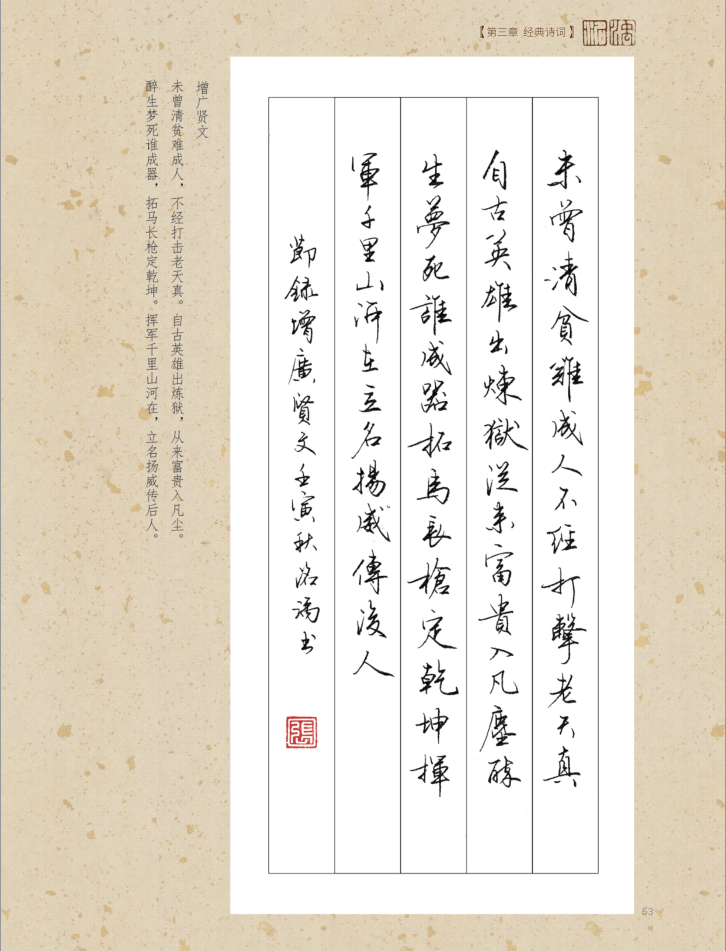 【第三章 经典诗词】
未曾清貧難成人不经打擊老天真
自古英雄出煉獄從來富貴入凡塵醉
生夢死誰成器拓馬長槍定乾坤揮
軍千里山河在立名揚威傳後人
節録增廣賢文壬寅秋洺滿书
張
增广贤文
未曾清贫难成人，不经打击老天真。自古英雄出炼狱，从来富贵入凡尘。
醉生梦死谁成器，拓马长枪定乾坤。挥军千里山河在，立名扬威传后人。
53